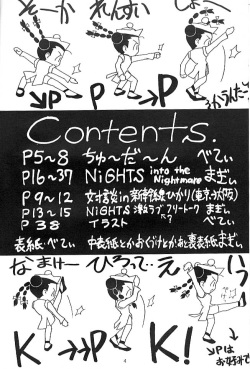 そーか れんすい しょ
↓P P P
Contents.
P5~8 ちゅ~だ~ん べてぃ
P16~37 NiGHTS into the Nightmare まぎぃ
P9~12 対談 in 新幹線ひかり(東京→大阪)
P13~15 NiGHTS フリートーク まぎぃ
P38 イラスト べてぃ
表紙・べてぃ 中表紙とかおくづけとかあと裏表紙まぎぃ
なまけー ひろって・・ えい
K →→P K!
↓Pは
お好みで
4